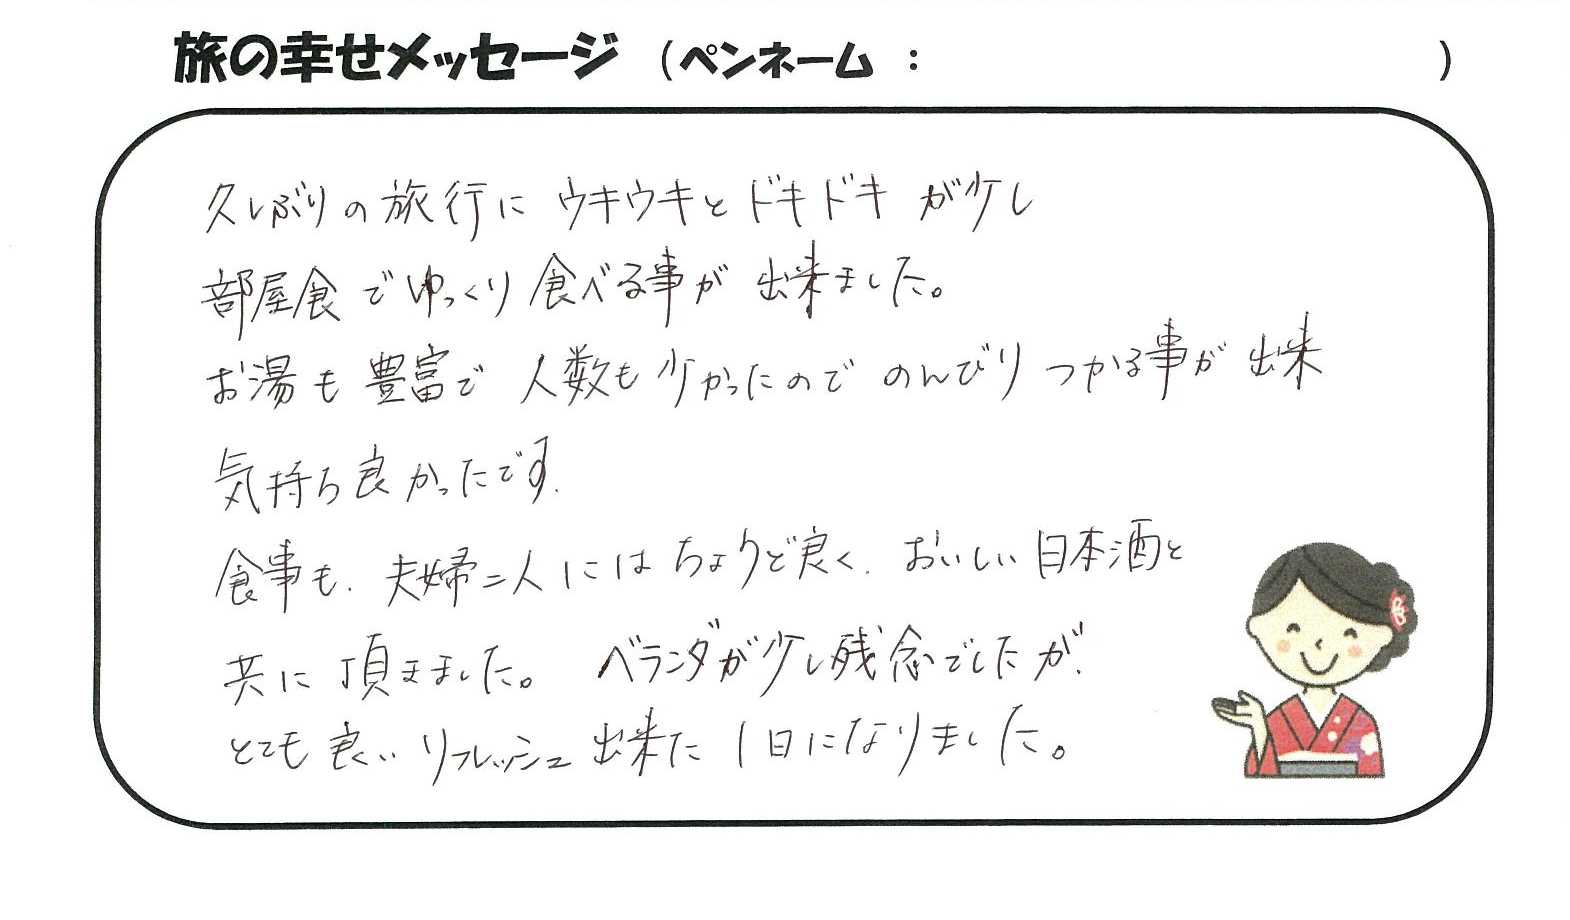 旅の幸せメッセージ （ペンネーム ： ）
久しぶりの旅行に ウキウキと ドキドキ が少し
部屋食でゆっくり食べる事が 出来ました。
お湯も豊富で 人数も少かったので のんびりつかる事が 出来
気持ち良かったです.
食事も、夫婦二人にはちょうど良く、おいしい日本酒と
共に頂きました。 ベランダが少し残念でしたが、
とても良いリフレッシュ出来た1日になりました。